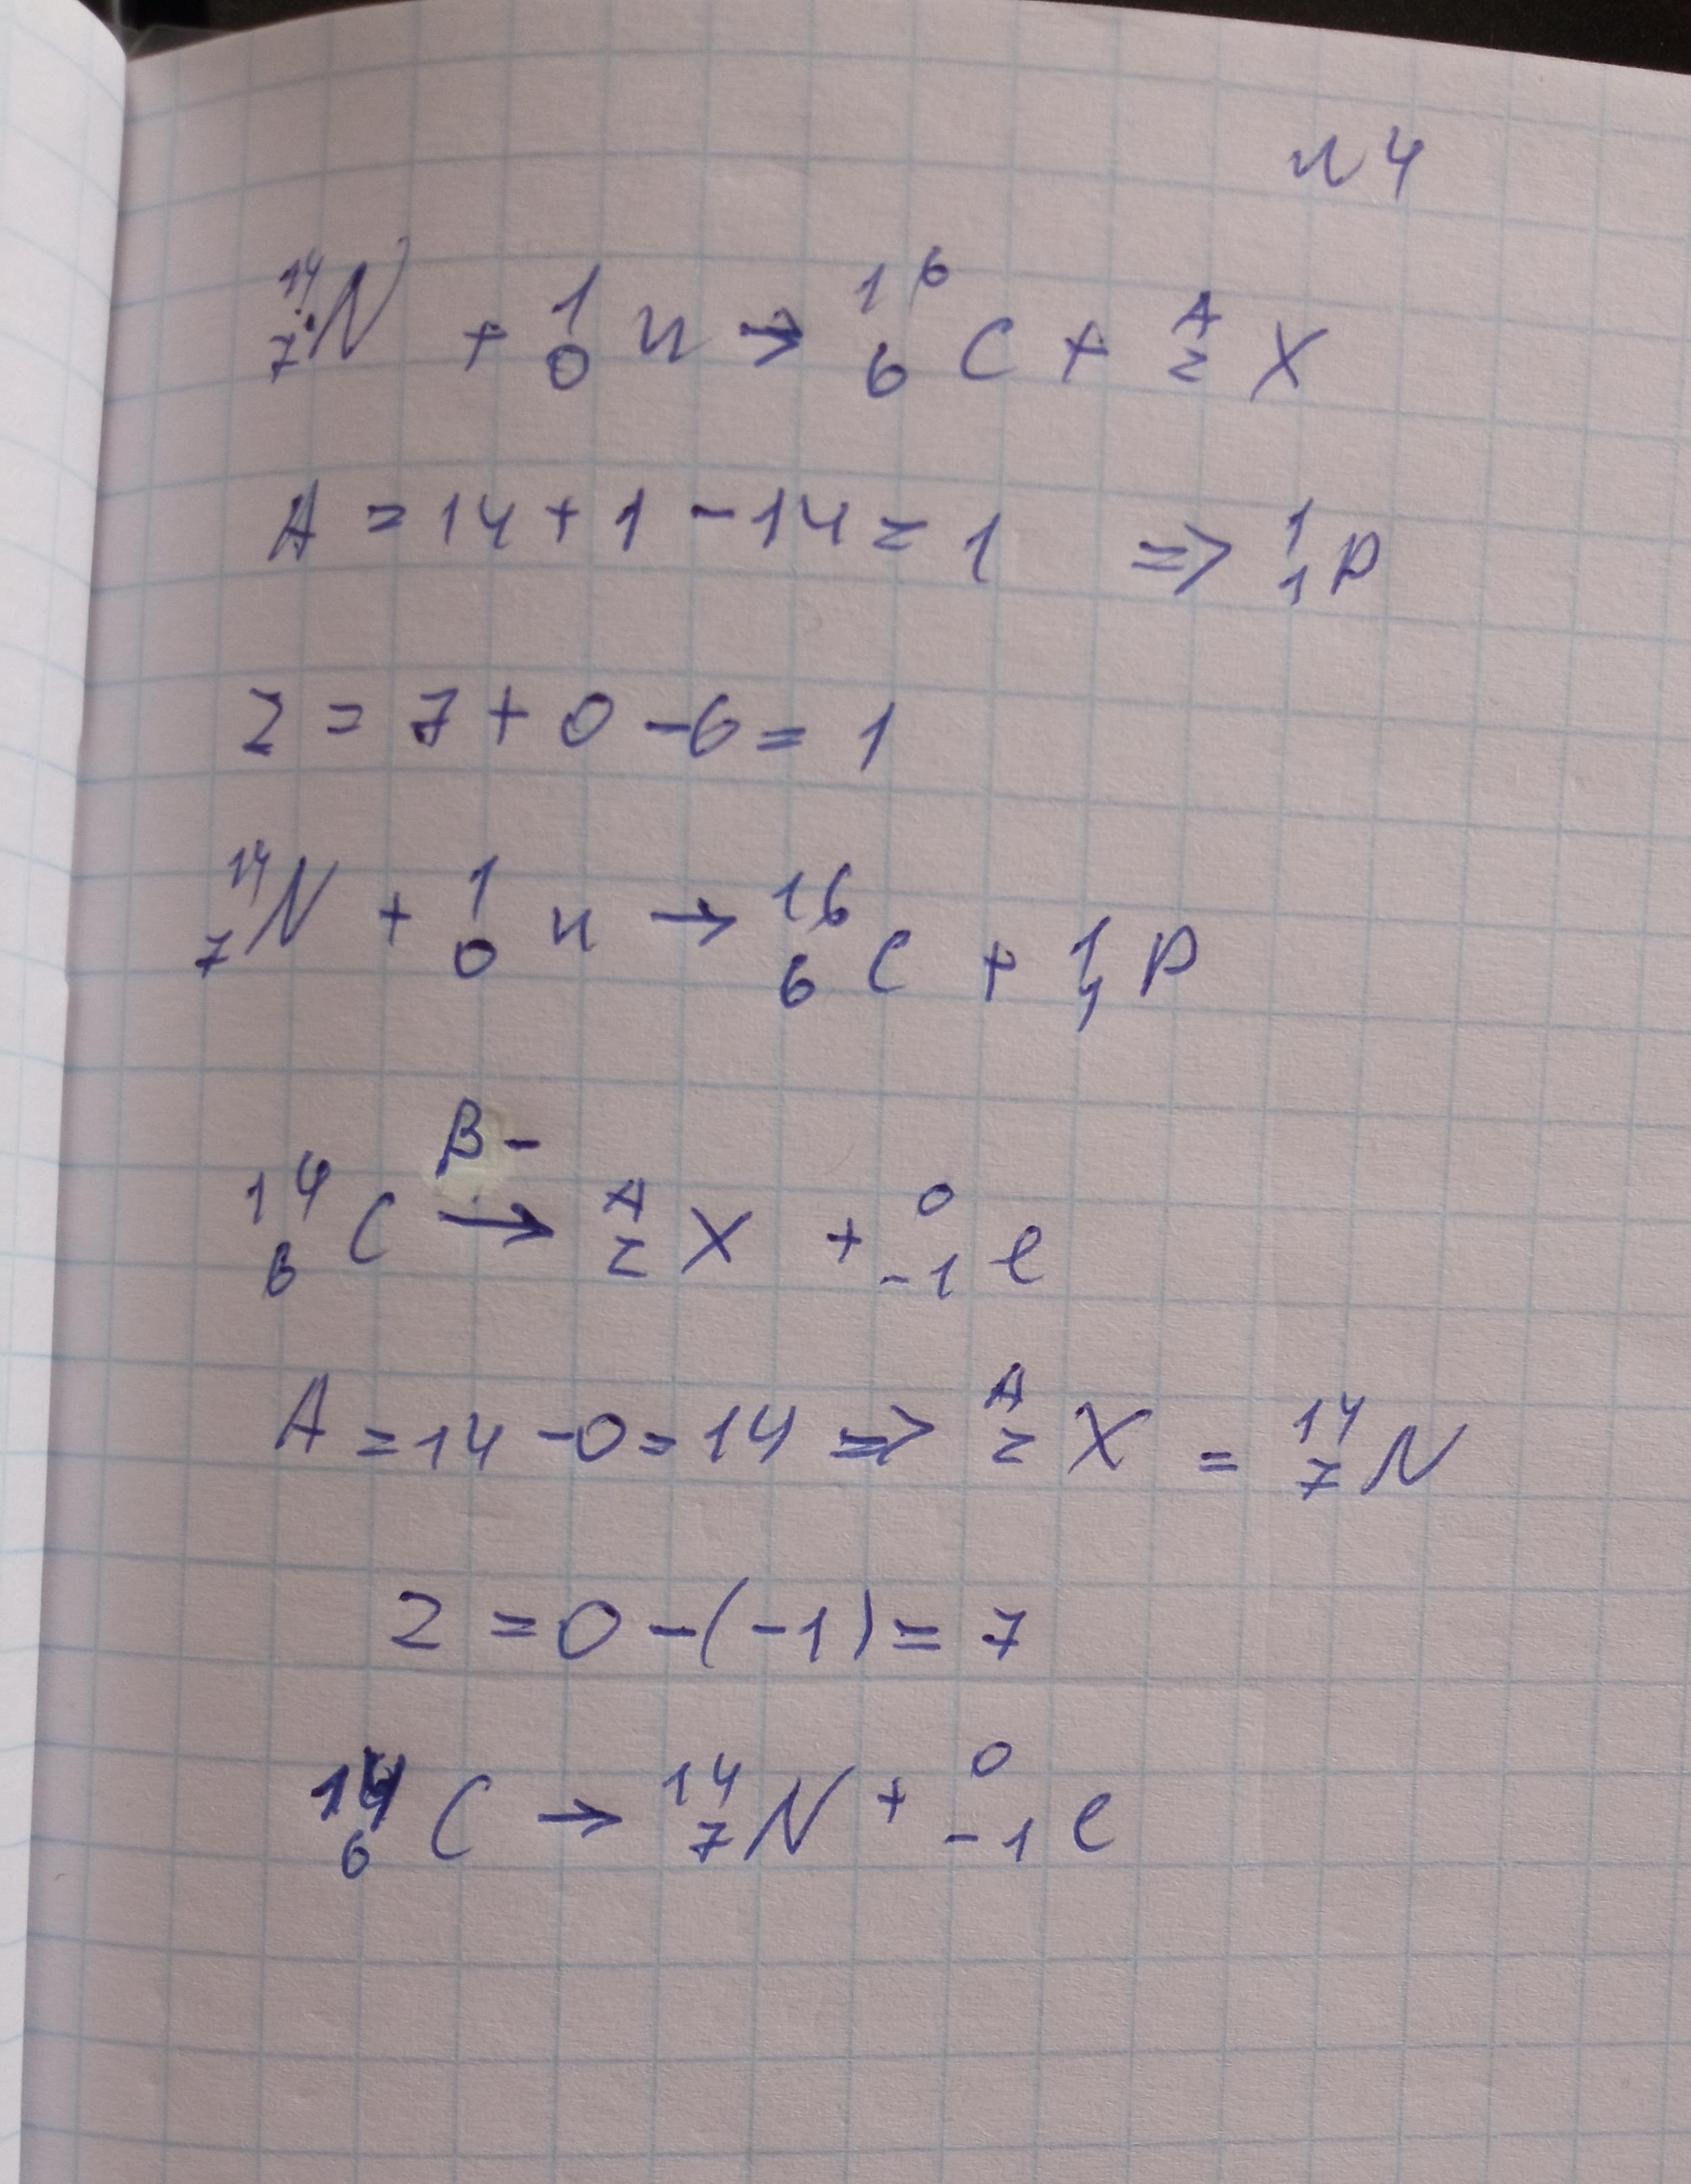 n4
¹⁴₇N + ¹₀n → ¹⁶₆C + ᴬ_Z X
A = 14 + 1 - 14 = 1 => ¹₁p
Z = 7 + 0 - 6 = 1
¹⁴₇N + ¹₀n → ¹⁶₆C + ¹₁p
¹⁴₆C β- → ᴬ_Z X + ⁰₋₁e
A = 14 - 0 = 14 => ᴬ_Z X = ¹⁴₇N
Z = 0 - (-1) = 7
¹⁴₆C → ¹⁴₇N + ⁰₋₁e